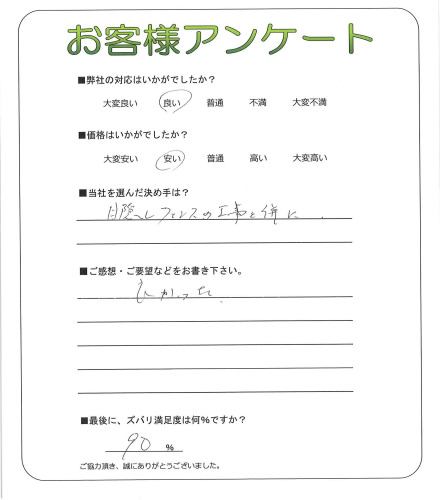 お客様アンケート
■弊社の対応はいかがでしたか？
大変良い 良い 普通 不満 大変不満
■価格はいかがでしたか？
大変安い 安い 普通 高い 大変高い
■当社を選んだ決め手は？
目隠しフェンスの工事と併に
■ご感想・ご要望などをお書き下さい。
■最後に、ズバリ満足度は何％ですか？
90 ％
ご協力頂き、誠にありがとうございました。